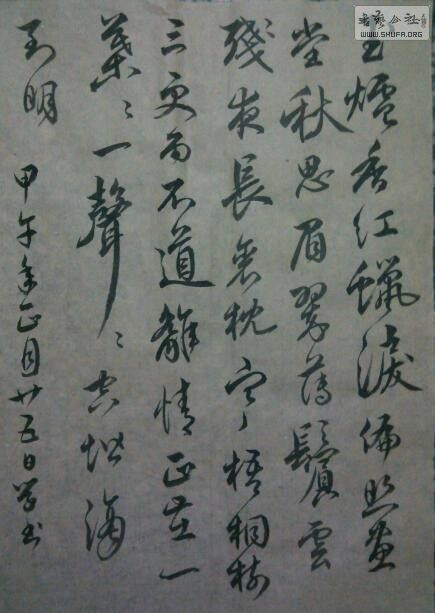 玉爐香红蠟淚偏照畫
堂秋思眉翠薄鬢雲
殘夜長衾枕寒梧桐樹
三更雨不道離情正苦一
葉〻一聲〻空階滴
到明 甲午年正月廿五日学书
书艺公社
WWW.SHUFA.ORG